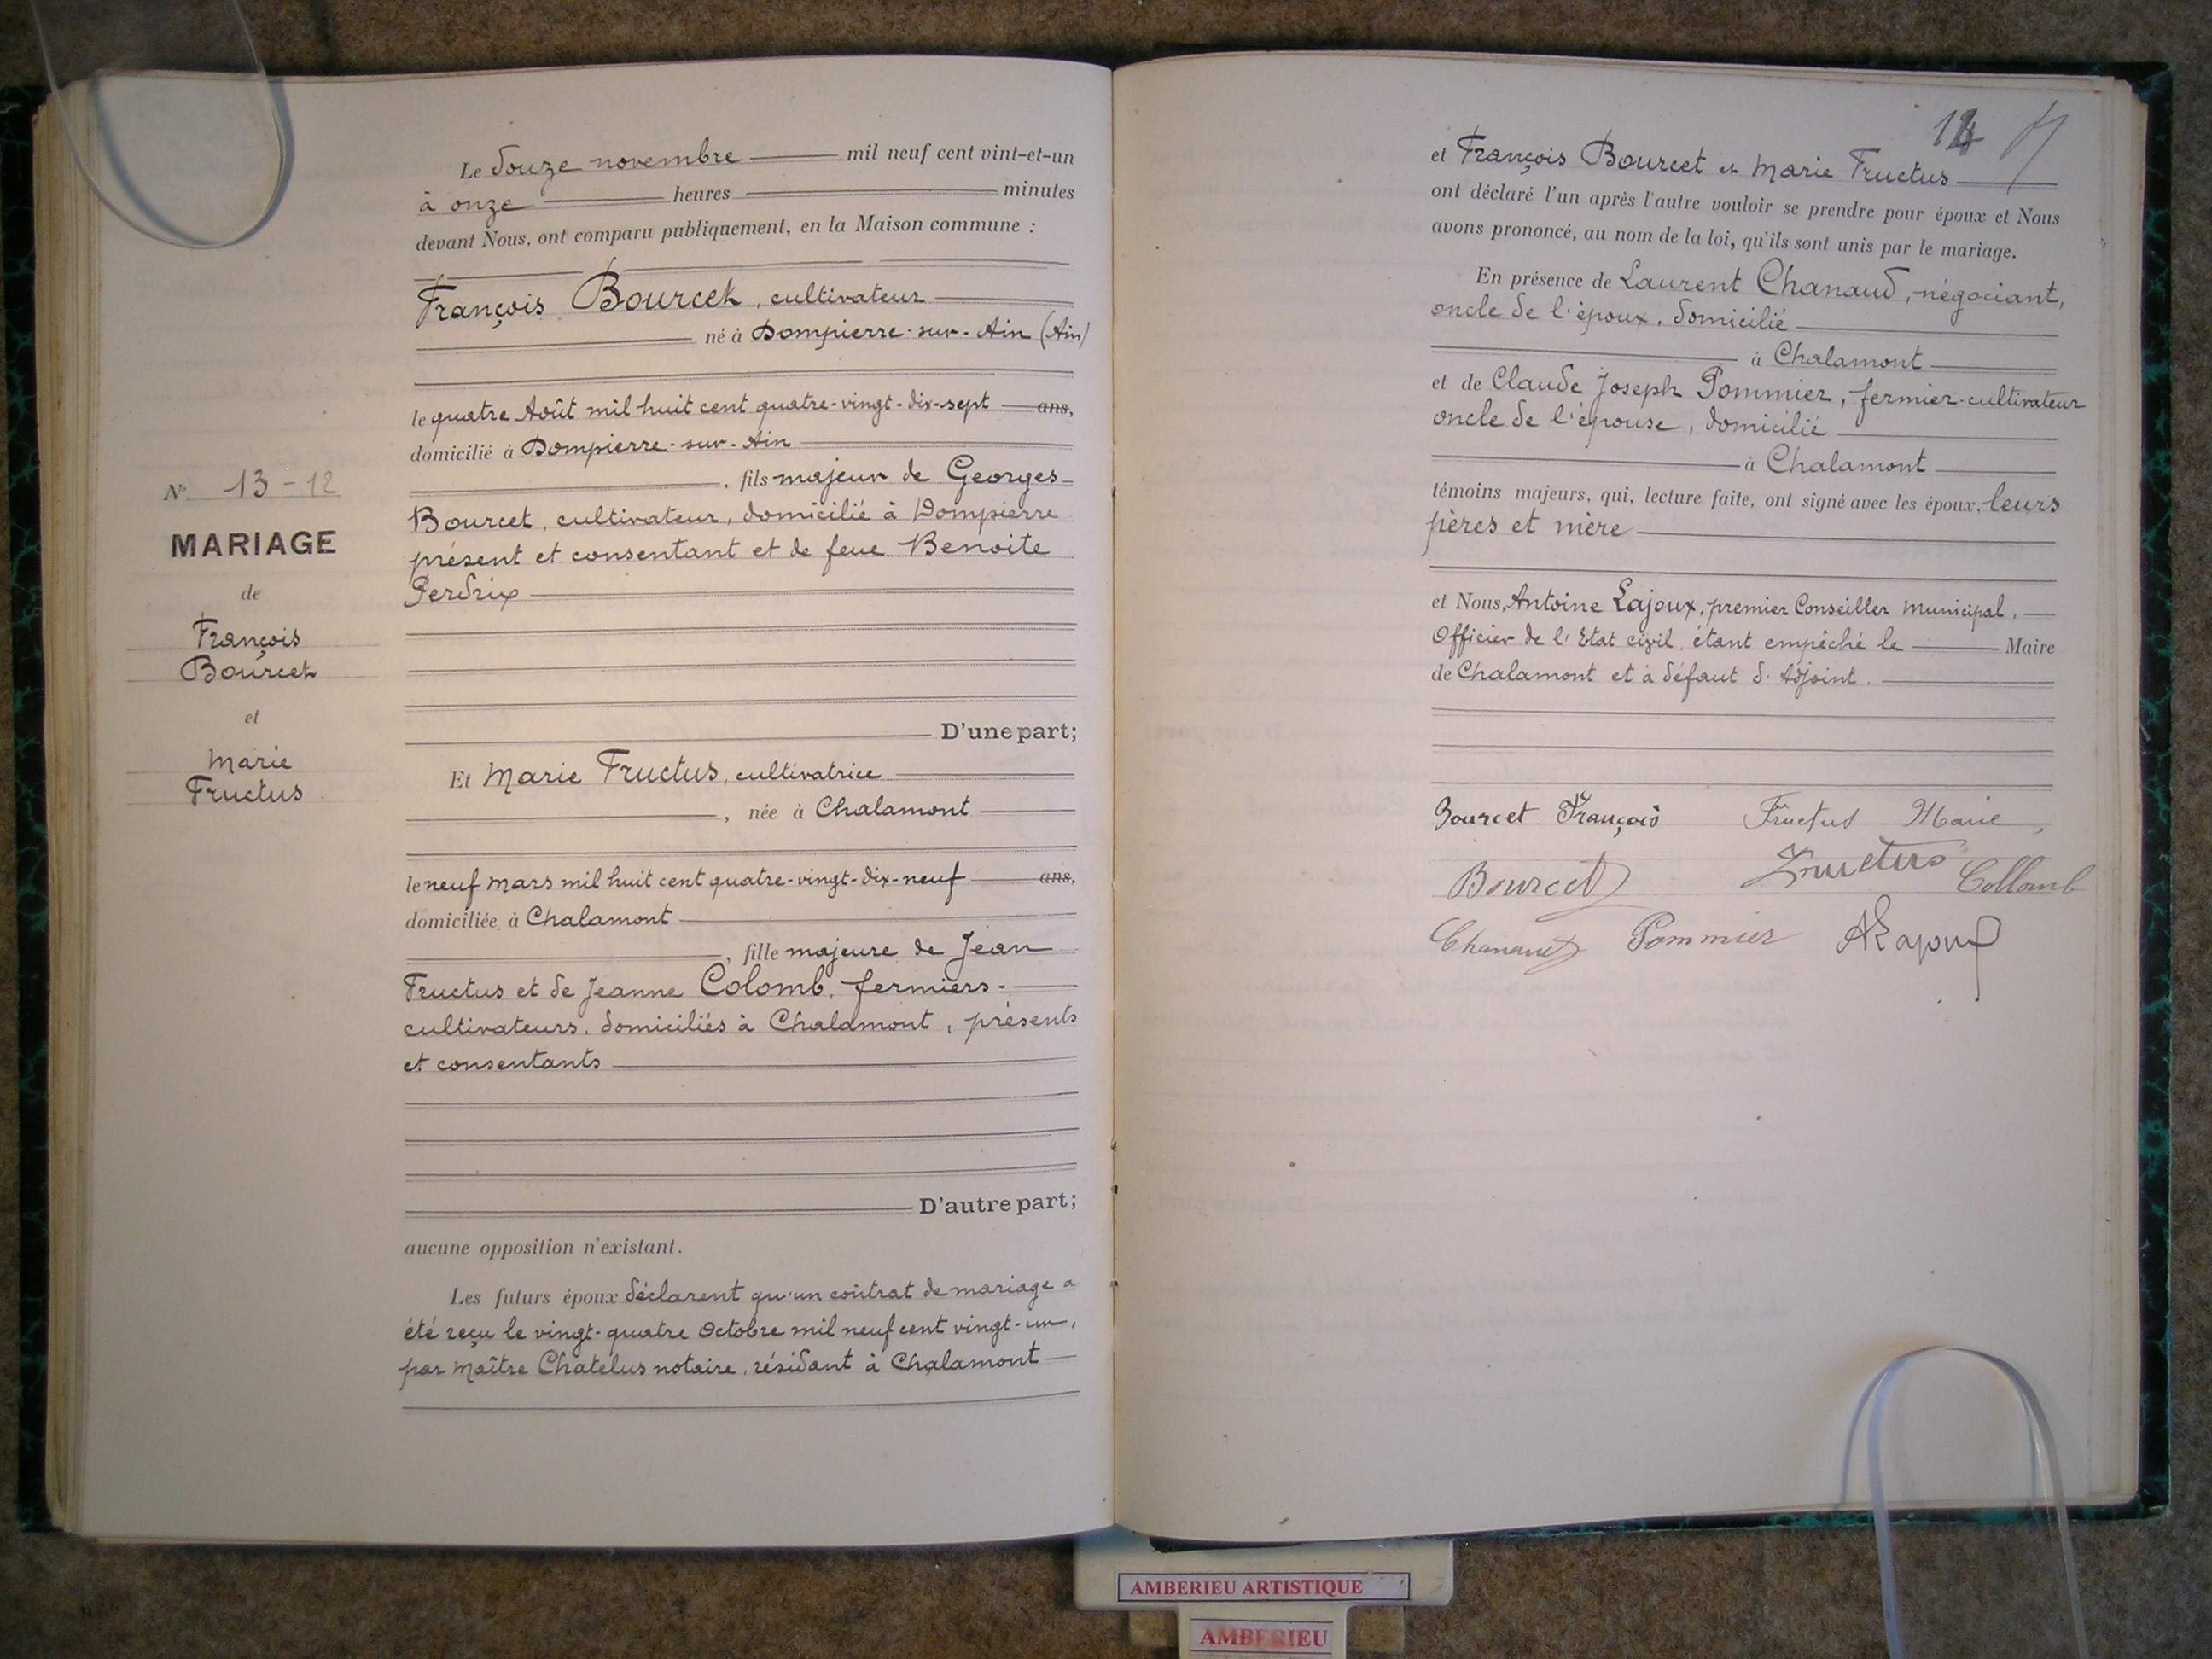 Le douze novembre mil neuf cent vint-et-un
à onze heures minutes
devant Nous, ont comparu publiquement, en la Maison commune :
François Bourcet, cultivateur
né à Dompierre-sur-Ain (Ain)
le quatre Août mil huit cent quatre-vingt-dix-sept ans,
domicilié à Dompierre-sur-Ain
, fils majeur de Georges
Bourcet, cultivateur, domicilié à Dompierre
présent et consentant et de feue Benoite
Perdrix
D'une part;
Et Marie Fructus, cultivatrice
, née à Chalamont
le neuf mars mil huit cent quatre-vingt-dix-neuf ans,
domiciliée à Chalamont
, fille majeure de Jean
Fructus et de Jeanne Colomb, fermiers-
cultivateurs, domiciliés à Chalamont, présents
et consentants
D'autre part;
aucune opposition n'existant.
Les futurs époux déclarent qu'un contrat de mariage a
été reçu le vingt-quatre Octobre mil neuf cent vingt-un,
par Maître Chatelus notaire, résidant à Chalamont
N° 13-12
MARIAGE
de
François
Bourcet
et
Marie
Fructus
et François Bourcet et Marie Fructus
ont déclaré l'un après l'autre vouloir se prendre pour époux et Nous
avons prononcé, au nom de la loi, qu'ils sont unis par le mariage.
En présence de Laurent Chanaud, négociant,
oncle de l'époux, domicilié
à Chalamont
et de Claude Joseph Pommier, fermier-cultivateur
oncle de l'épouse, domicilié
à Chalamont
témoins majeurs, qui, lecture faite, ont signé avec les époux, leurs
pères et mère
et Nous, Antoine Lajoux, premier Conseiller Municipal,
Officier de l'Etat civil, étant empêché le Maire
de Chalamont et à défaut d'Adjoint.
Bourcet François Fructus Marie
Bourcet Fructus Collomb
Chanaud Pommier ALajoux
AMBERIEU ARTISTIQUE
AMBERIEU